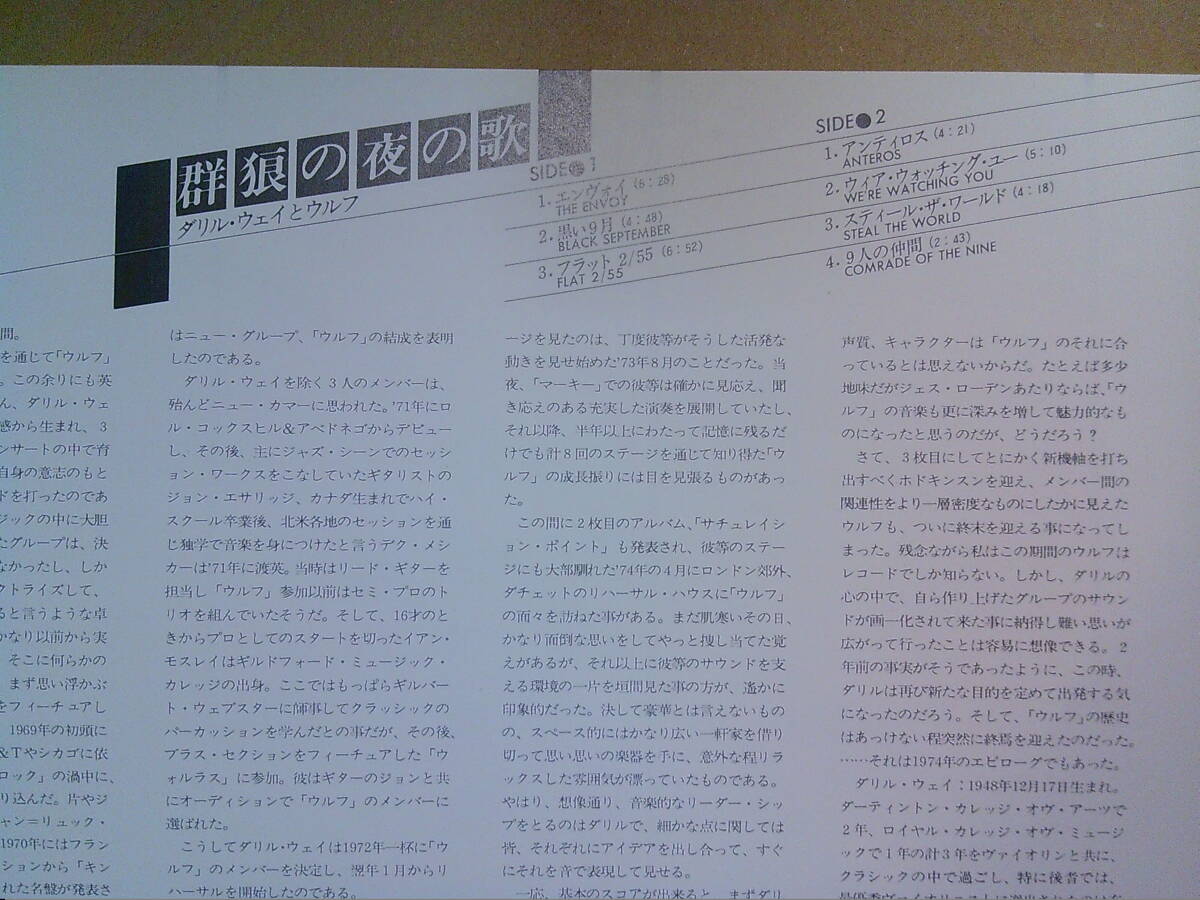 群狼の夜の歌
ダリル・ウェイとウルフ
SIDE 1
1. エンヴォイ (6:28)
THE ENVOY
2. 黒い9月 (4:48)
BLACK SEPTEMBER
3. フラット 2/55 (6:52)
FLAT 2/55
SIDE 2
1. アンティロス (4:21)
ANTEROS
2. ウィア・ウォッチング・ユー (5:10)
WE'RE WATCHING YOU
3. スティール・ザ・ワールド (4:18)
STEAL THE WORLD
4. 9人の仲間 (2:43)
COMRADE OF THE NINE
間。
を通じて「ウルフ」
。この余りにも英
ん、ダリル・ウェ
感から生まれ、3
ンサートの中で育
自身の意志のもと
ドを打ったのであ
ジックの中に大胆
たグループは、決
なかったし、しか
クトライズして、
ると言うような卓
かなり以前から実
そこに何らかの
まず思い浮かぶ
をフィーチュアし
1969年の初頭に
&Tやシカゴに依
ロック」の渦中に、
り込んだ。片やジ
ャン=リュック・
1970年にはフラン
ションから「キン
れた名盤が発表さ
はニュー・グループ、「ウルフ」の結成を表明
したのである。
ダリル・ウェイを除く3人のメンバーは、
殆んどニュー・カマーに思われた。'71年にロ
ル・コックスヒル&アベドネゴからデビュー
し、その後、主にジャズ・シーンでのセッシ
ョン・ワークスをこなしていたギタリストの
ジョン・エサリッジ、カナダ生まれでハイ・
スクール卒業後、北米各地のセッションを通
じ独学で音楽を身につけたと言うデク・メシ
カーは'71年に渡英。当時はリード・ギターを
担当し「ウルフ」参加以前はセミ・プロのト
リオを組んでいたそうだ。そして、16才のと
きからプロとしてのスタートを切ったイアン・
モスレイはギルドフォード・ミュージック・
カレッジの出身。ここではもっぱらギルバー
ト・ウェブスターに師事してクラッシックの
パーカッションを学んだとの事だが、その後、
ブラス・セクションをフィーチュアした「ウ
ォルラス」に参加。彼はギターのジョンと共
にオーディションで「ウルフ」のメンバーに
選ばれた。
こうしてダリル・ウェイは1972年一杯に「ウ
ルフ」のメンバーを決定し、翌年1月からリ
ハーサルを開始したのである。
ージを見たのは、丁度彼等がそうした活発な
動きを見せ始めた'73年8月のことだった。当
夜、「マーキー」での彼等は確かに見応え、聞
き応えのある充実した演奏を展開していたし、
それ以降、半年以上にわたって記憶に残るだ
けでも計8回のステージを通じて知り得た「ウ
ルフ」の成長振りには目を見張るものがあっ
た。
この間に2枚目のアルバム、「サチュレイシ
ョン・ポイント」も発表され、彼等のステー
ジにも大部馴れた'74年の4月にロンドン郊外、
ダチェットのリハーサル・ハウスに「ウルフ」
の面々を訪ねた事がある。まだ肌寒いその日、
かなり面倒な思いをしてやっと捜し当てた覚
えがあるが、それ以上に彼等のサウンドを支
える環境の一片を垣間見た事の方が、遥かに
印象的だった。決して豪華とは言えないもの
の、スペース的にはかなり広い一軒家を借り
切って思い思いの楽器を手に、意外な程リラ
ックスした雰囲気が漂っていたものである。
やはり、想像通り、音楽的なリーダー・シッ
プをとるのはダリルで、細かな点に関しては
皆、それぞれにアイデアを出し合って、すぐ
にそれを音で表現して見せる。
一応、基本のスコアが出来ると、まずダリ
声質、キャラクターは「ウルフ」のそれに合
っているとは思えないからだ。たとえば多少
地味だがジェス・ローデンあたりならば、「ウ
ルフ」の音楽も更に深みを増して魅力的なも
のになったと思うのだが、どうだろう?
さて、3枚目にしてとにかく新機軸を打ち
出すべくホドキンスンを迎え、メンバー間の
関連性をより一層密度なものにしたかに見えた
ウルフも、ついに終末を迎える事になってし
まった。残念ながら私はこの期間のウルフは
レコードでしか知らない。しかし、ダリルの
心の中で、自ら作り上げたグループのサウン
ドが画一化されて来た事に納得し難い思いが
広がって行ったことは容易に想像できる。2
年前の事実がそうであったように、この時、
ダリルは再び新たな目的を定めて出発する気
になったのだろう。そして、「ウルフ」の歴史
はあっけない程突然に終焉を迎えたのだった。
……それは1974年のエピローグでもあった。
ダリル・ウェイ:1948年12月17日生まれ。
ダーティントン・カレッジ・オヴ・アーツで
2年、ロイヤル・カレッジ・オヴ・ミュージ
ックで1年の計3年をヴァイオリンと共に、
クラシックの中で過ごし、特に後者では、